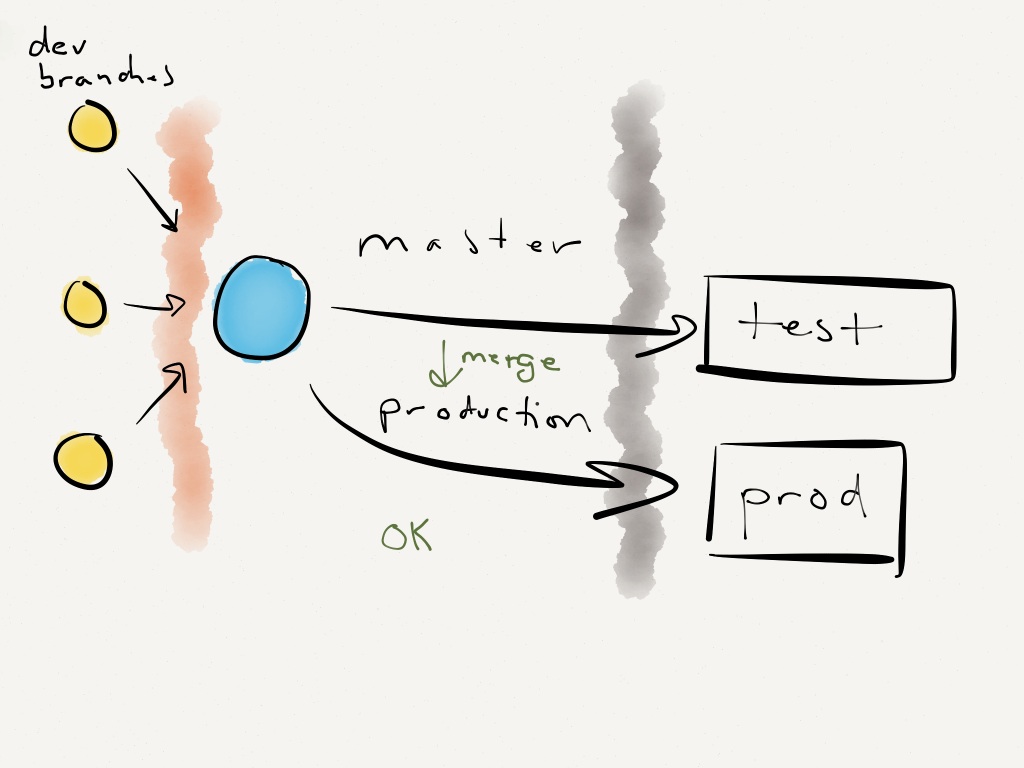 dev
branches
master
test
merge
production
prod
OK